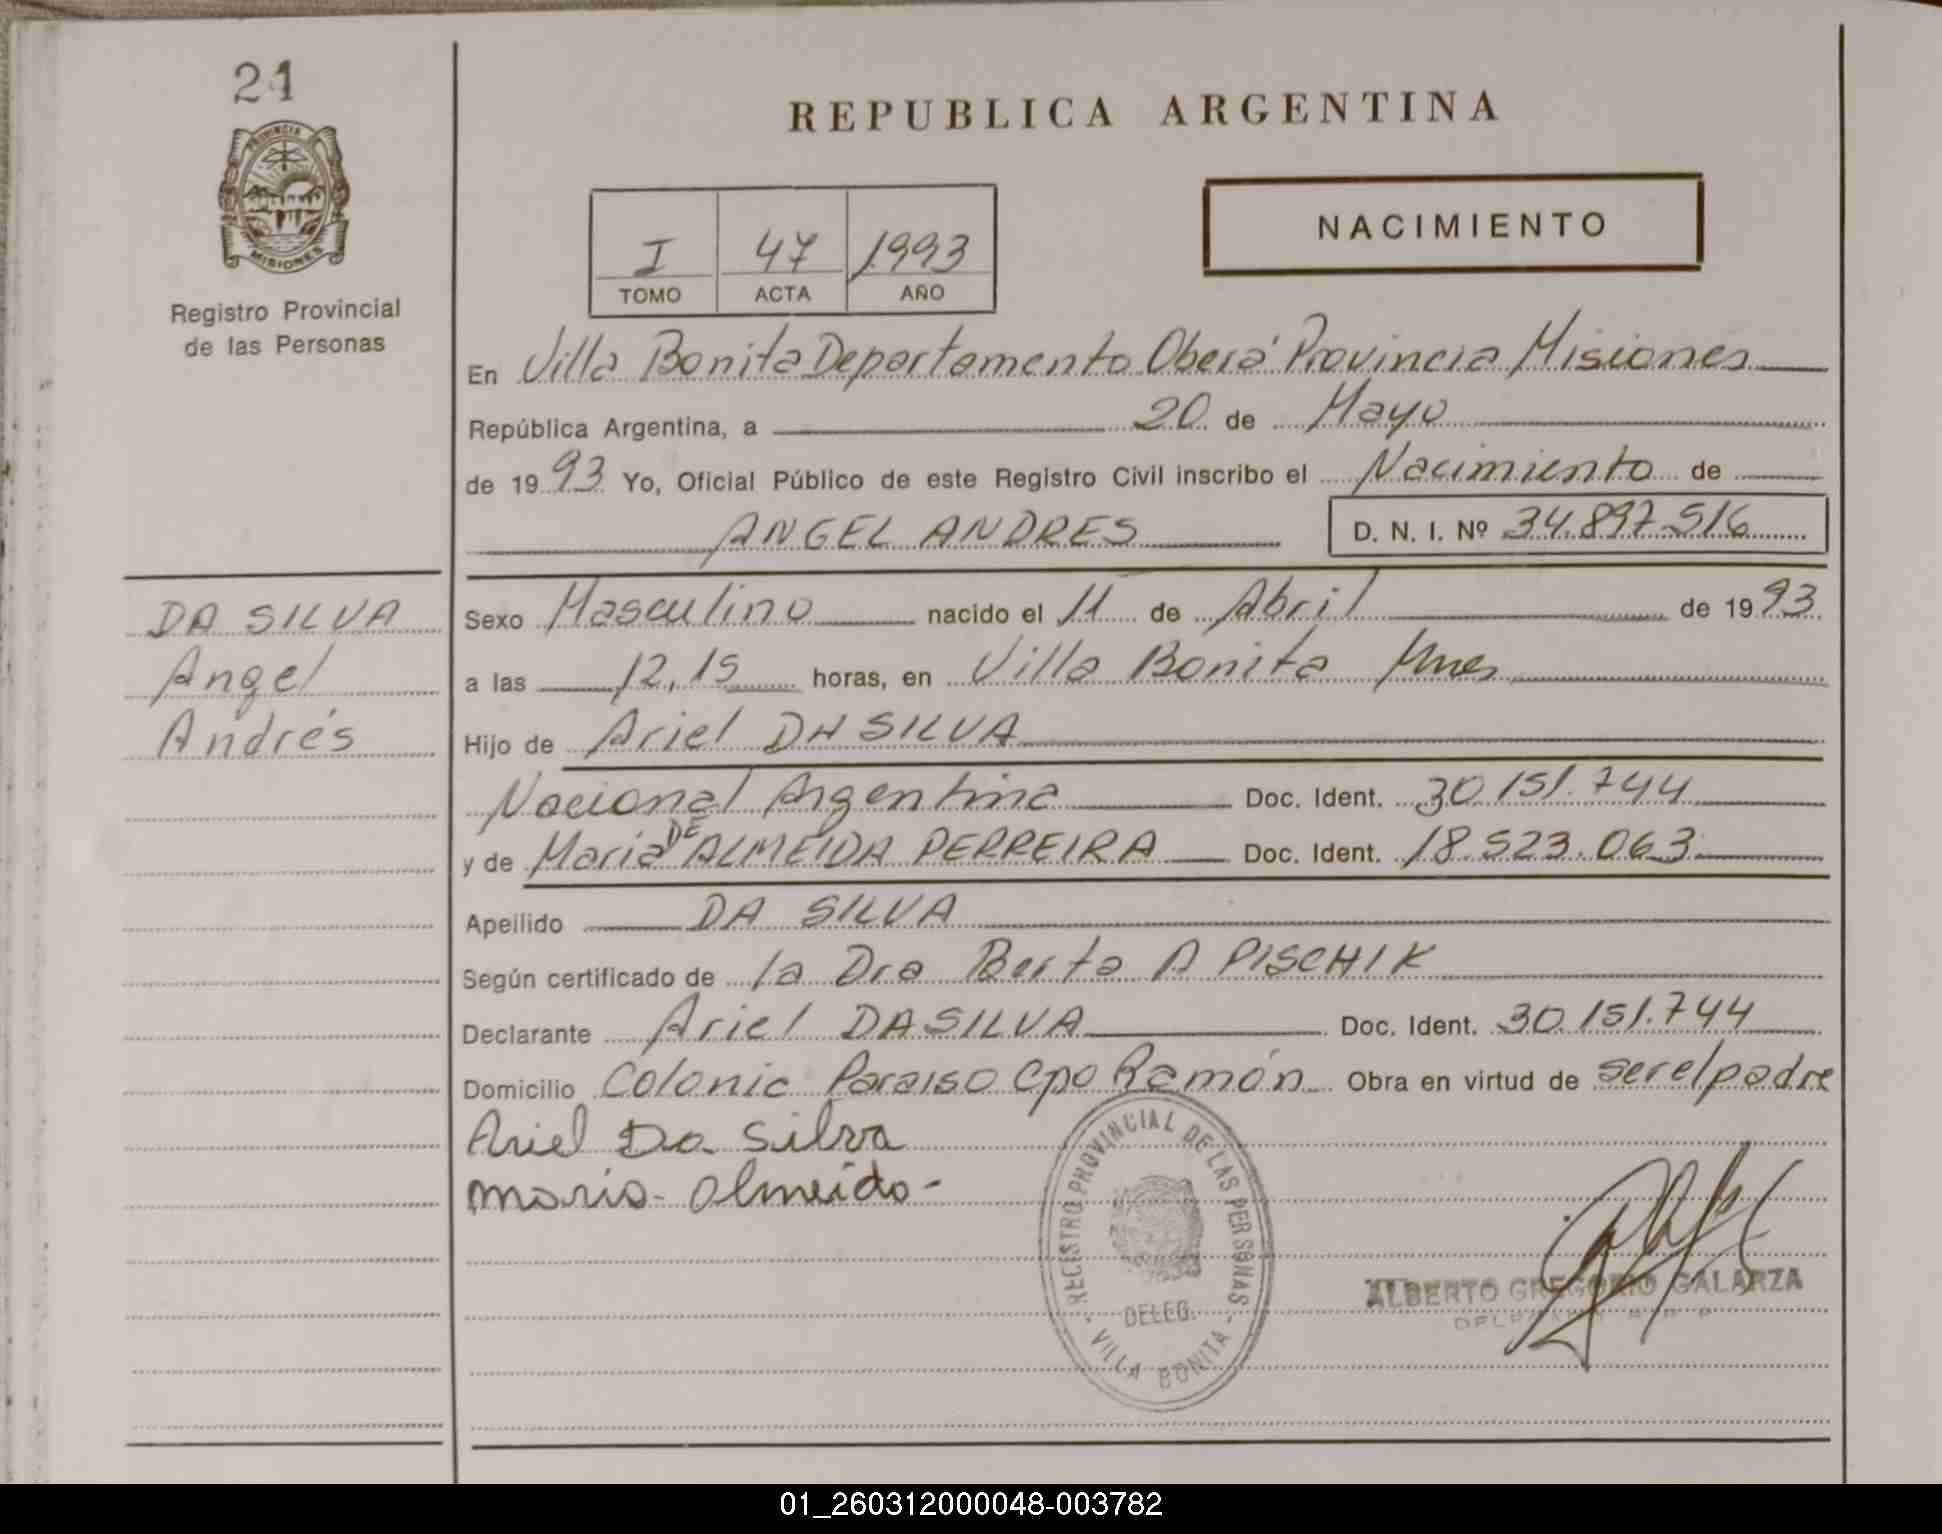 21
PROVINCIA DE
MISIONES
Registro Provincial
de las Personas
REPUBLICA ARGENTINA
NACIMIENTO
I 47 1993
TOMO ACTA AÑO
En Villa Bonita Departamento Oberá Provincia Misiones
República Argentina, a 20 de Mayo
de 1993 Yo, Oficial Público de este Registro Civil inscribo el Nacimiento de
ANGEL ANDRES D. N. I. Nº 34.897.516
DA SILVA
Angel
Andrés
Sexo Masculino nacido el 11 de Abril de 1993
a las 12,15 horas, en Villa Bonita Mnes
Hijo de Ariel DA SILVA
Nacional Argentina Doc. Ident. 30.151.744
y de Maria DE ALMEIDA PERREIRA Doc. Ident. 18.523.063
Apellido DA SILVA
Según certificado de la Dra Berta A PISCHIK
Declarante Ariel DA SILVA Doc. Ident. 30.151.744
Domicilio Colonia Paraiso Cpo Ramón Obra en virtud de ser el padre
Ariel Da Silva
Maria Almeida
REGISTRO PROVINCIAL DE LAS PERSONAS
DELEG.
VILLA BONITA
ALBERTO GREGORIO GALARZA
01_260312000048-003782